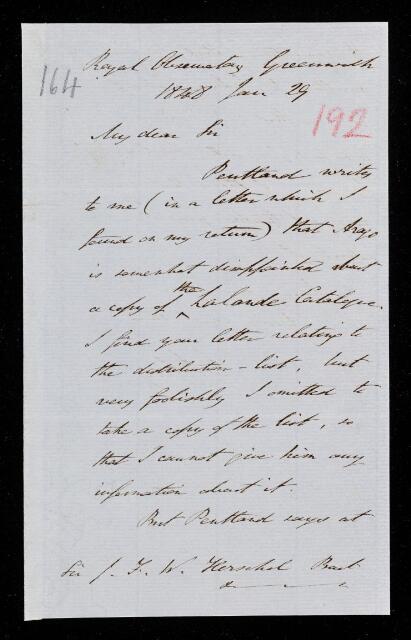 164
Royal Observatory Greenwich
1848 Jan 29
192
My dear Sir
Pentland writes
to me (in a letter which I
found on my return) that Arago
is somewhat disappointed about
a copy of the Lalande Catalogue.
I find your letter relating to
the distribution-list, but
very foolishly I omitted to
take a copy of the list, so
that I cannot give him any
information about it.
But Pentland says at
Sir J. F. W. Herschel Bart